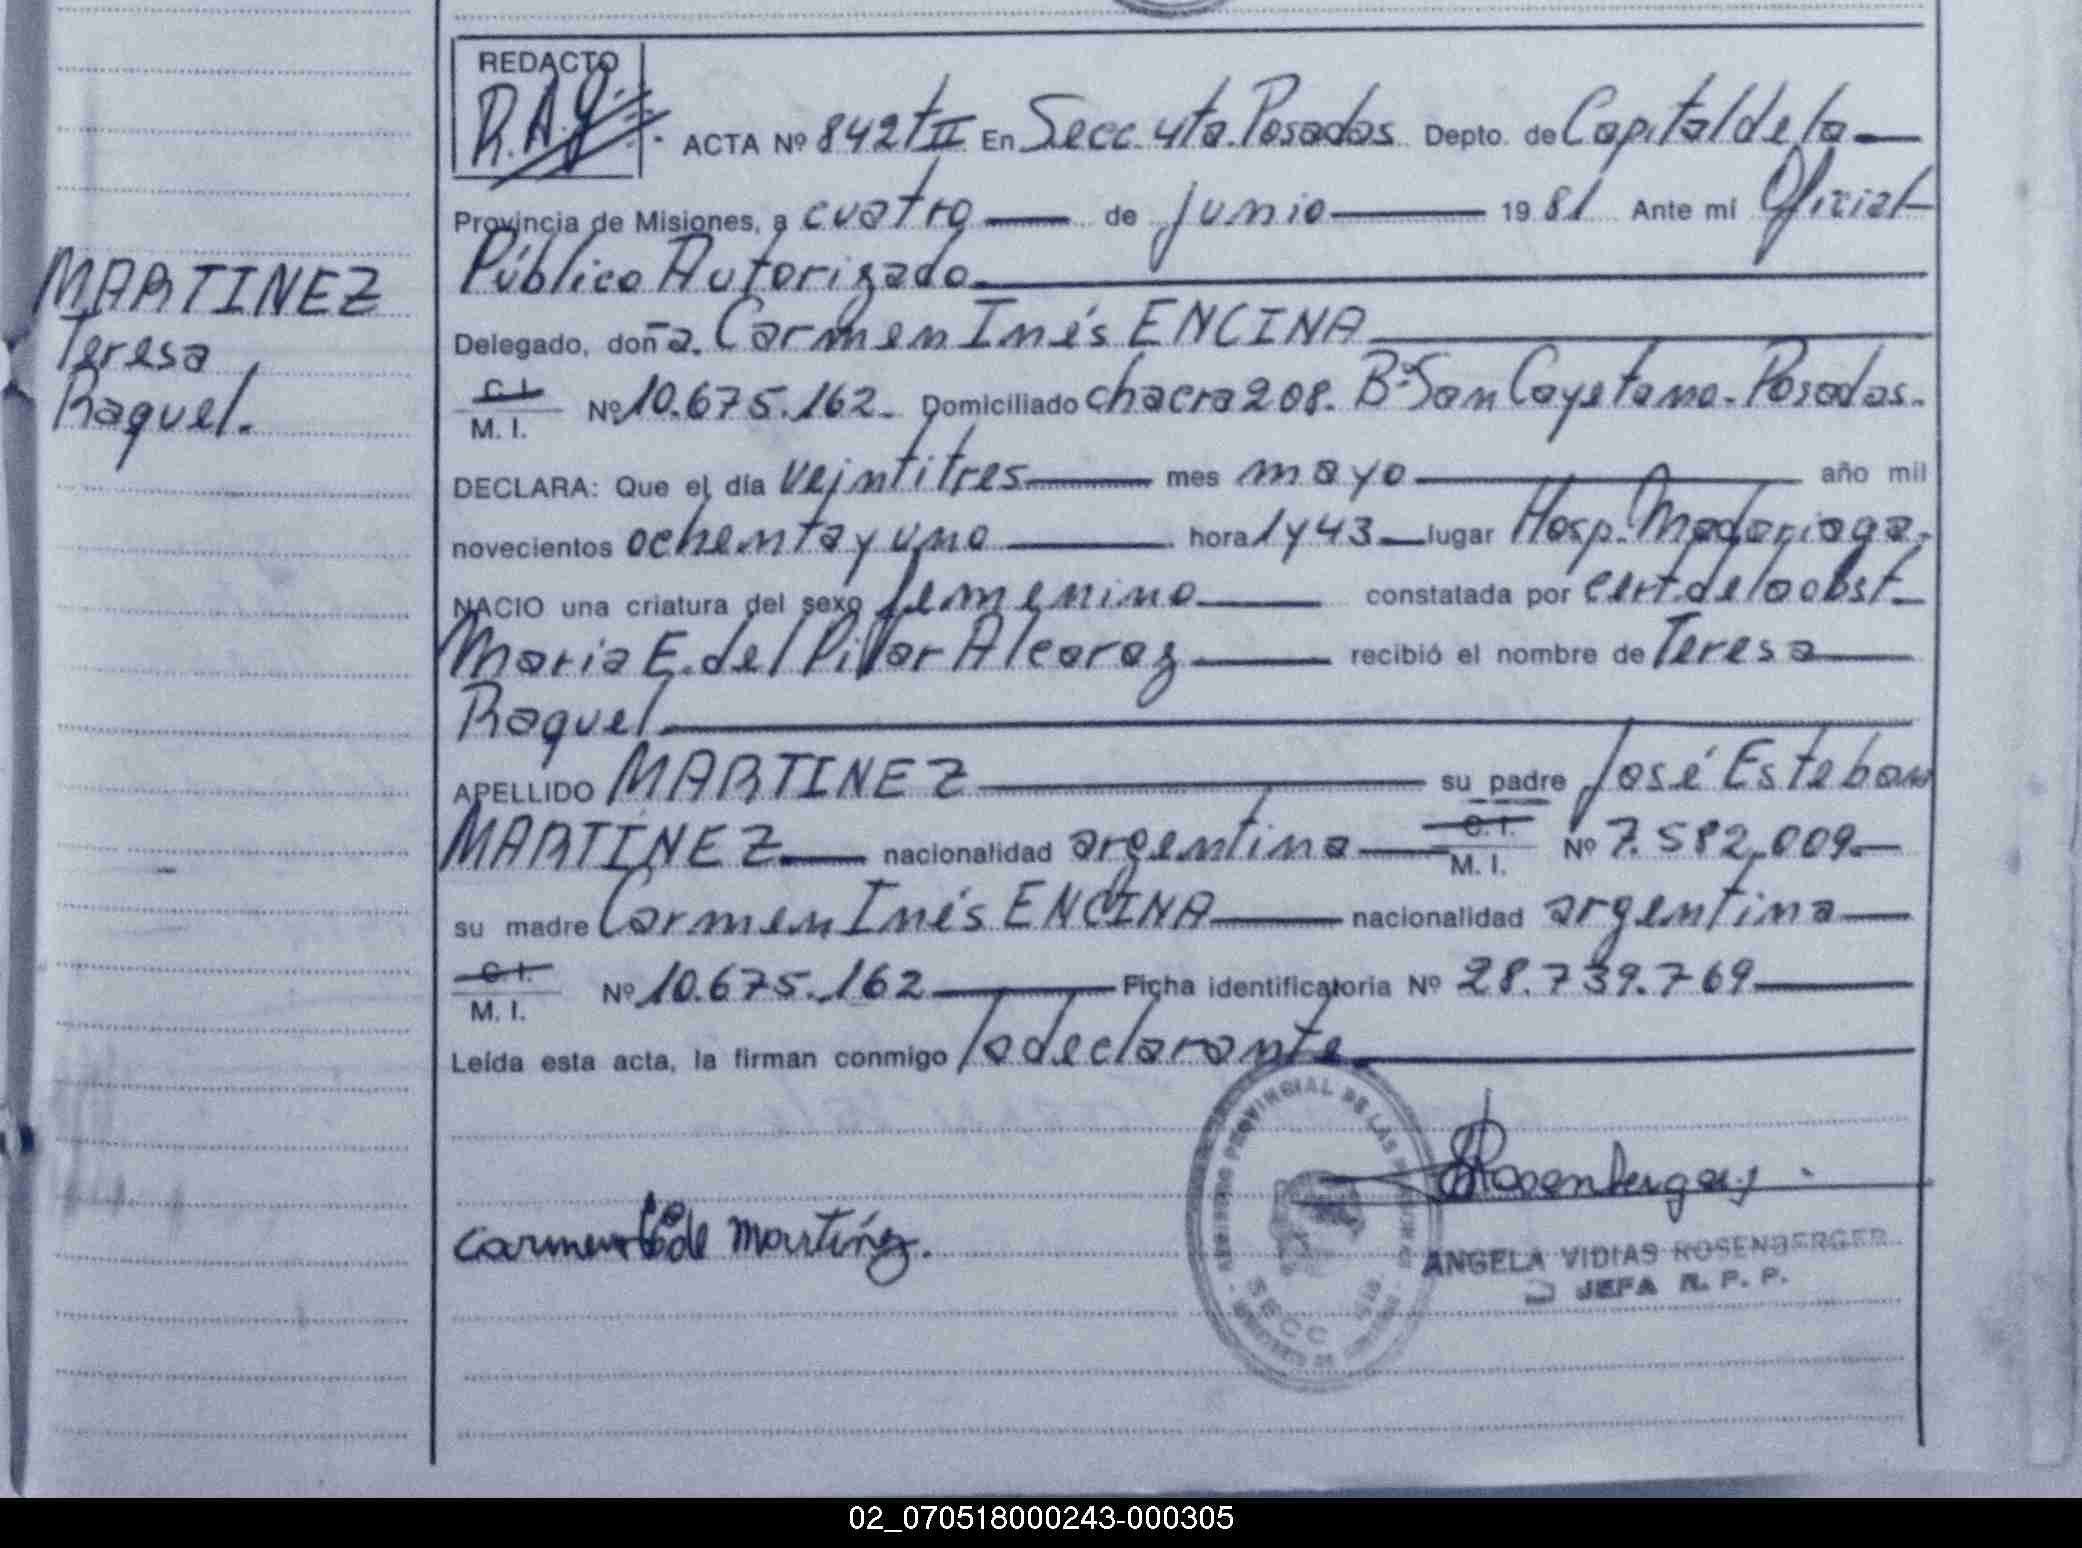 REDACTO
R.A.G.
ACTA Nº 842 tII En Secc. 4ta. Posadas Depto. de Capital de la
Provincia de Misiones, a cuatro de junio 1981 Ante mi Oficial
Público Autorizado
MARTINEZ
Teresa
Raquel.
Delegado, doña. Carmen Inés ENCINA
C.I.
M. I. Nº 10.675.162. Domiciliado chacra 208. Bº San Cayetano. Posadas.
DECLARA: Que el día veintitres mes mayo año mil
novecientos ochenta y uno hora 1 y 43 lugar Hosp. Madariaga.
NACIO una criatura del sexo femenino constatada por cert. de la obst.
Maria E. del Pilar Alcaraz recibió el nombre de Teresa
Raquel
APELLIDO MARTINEZ su padre José Esteban
MARTINEZ nacionalidad argentina C.I. M. I. Nº 7.582.009.
su madre Carmen Inés ENCINA nacionalidad argentina
C.I.
M. I. Nº 10.675.162 Ficha identificatoria Nº 28.739.769
Leída esta acta, la firman conmigo la declarante.
PROVINCIAL DE LAS
SECC
Carmen de Martínez.
Rosenberger
ANGELA VIDIAS ROSENBERGER
JEFA R. P. P.
02_070518000243-000305